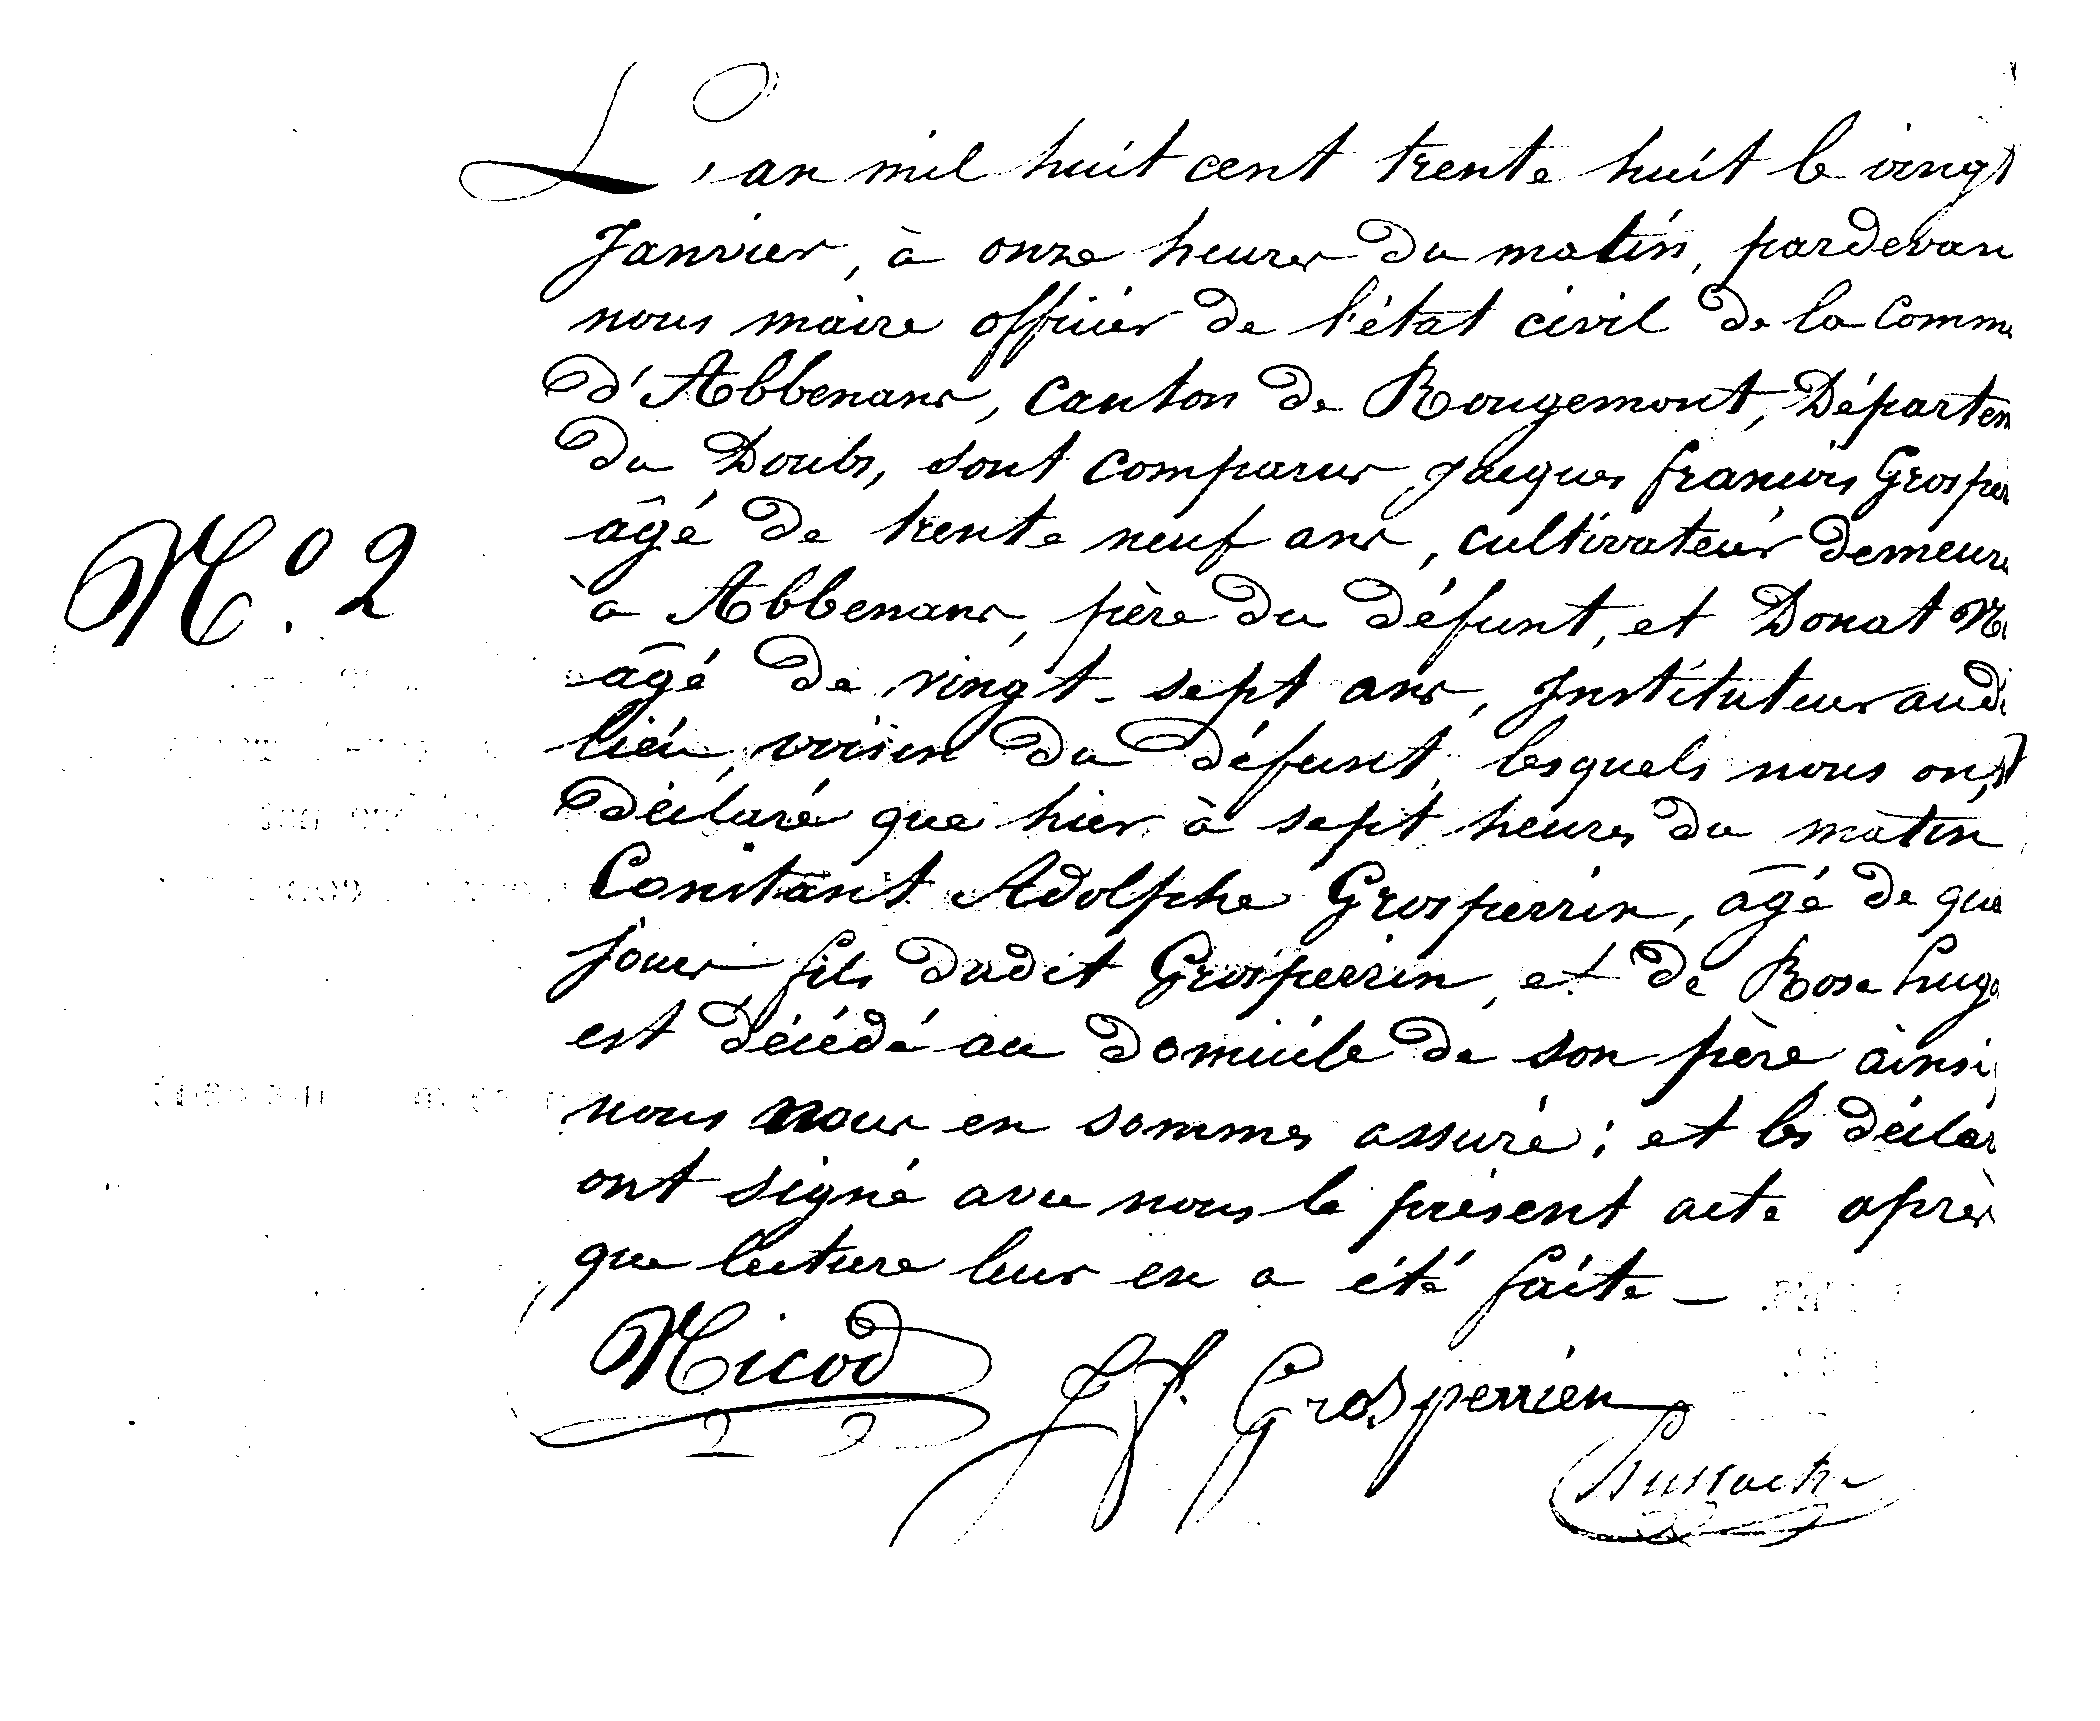 L'an mil huit cent trente huit le vingt
Janvier, à onze heures du matin, pardevan
nous maire officier de l'état civil de la Comm
d'Abbenans, Canton de Rougemont, Départem
du Doubs, sont comparus Jacques françois Grosper
âgé de trente neuf ans, cultivateur demeur
N.o 2
à Abbenans, père du défunt, et Donat Ni
âgé de vingt-sept ans, Instituteur audi
lieu, voisin du défunt, lesquels nous ont
déclaré que hier à sept heures du matin
Constant Adolphe Grosperrin, âgé de qua
jours fils dudit Grosperrin, et de Rose hugo
est décédé au domicile de son père ainsi
nous nous en sommes assuré; et les déclar
ont signé avec nous le présent acte après
que lecture leur en a été faite —
Nicod
J f. Grosperrien